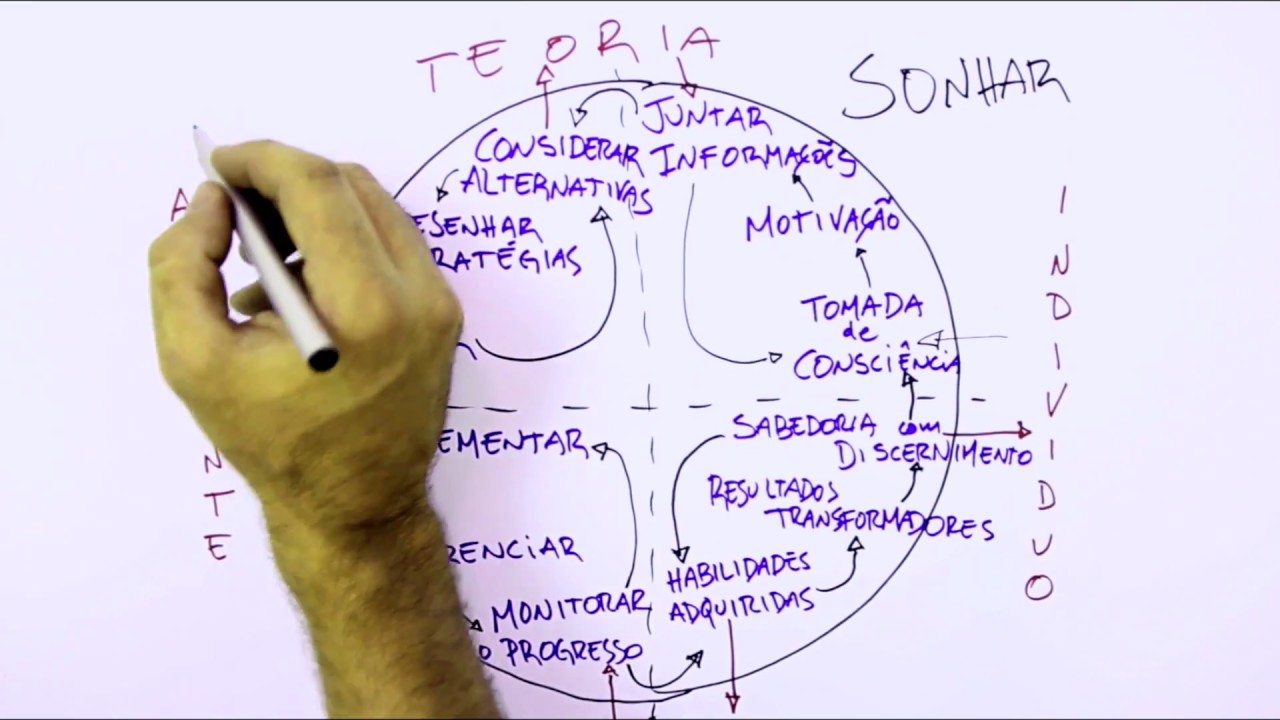 TEORIA
SONHAR
JUNTAR
INFORMAÇÕES
CONSIDERAR
ALTERNATIVAS
MOTIVAÇÃO
ESENHAR
RATÉGIAS
TOMADA
de
CONSCIÊNCIA
INDIVIDUO
SABEDORIA com
DISCERNIMENTO
EMENTAR
RESULTADOS
TRANSFORMADORES
RENCIAR
HABILIDADES
ADQUIRIDAS
MONITORAR
O PROGRESSO
A
N
T
E